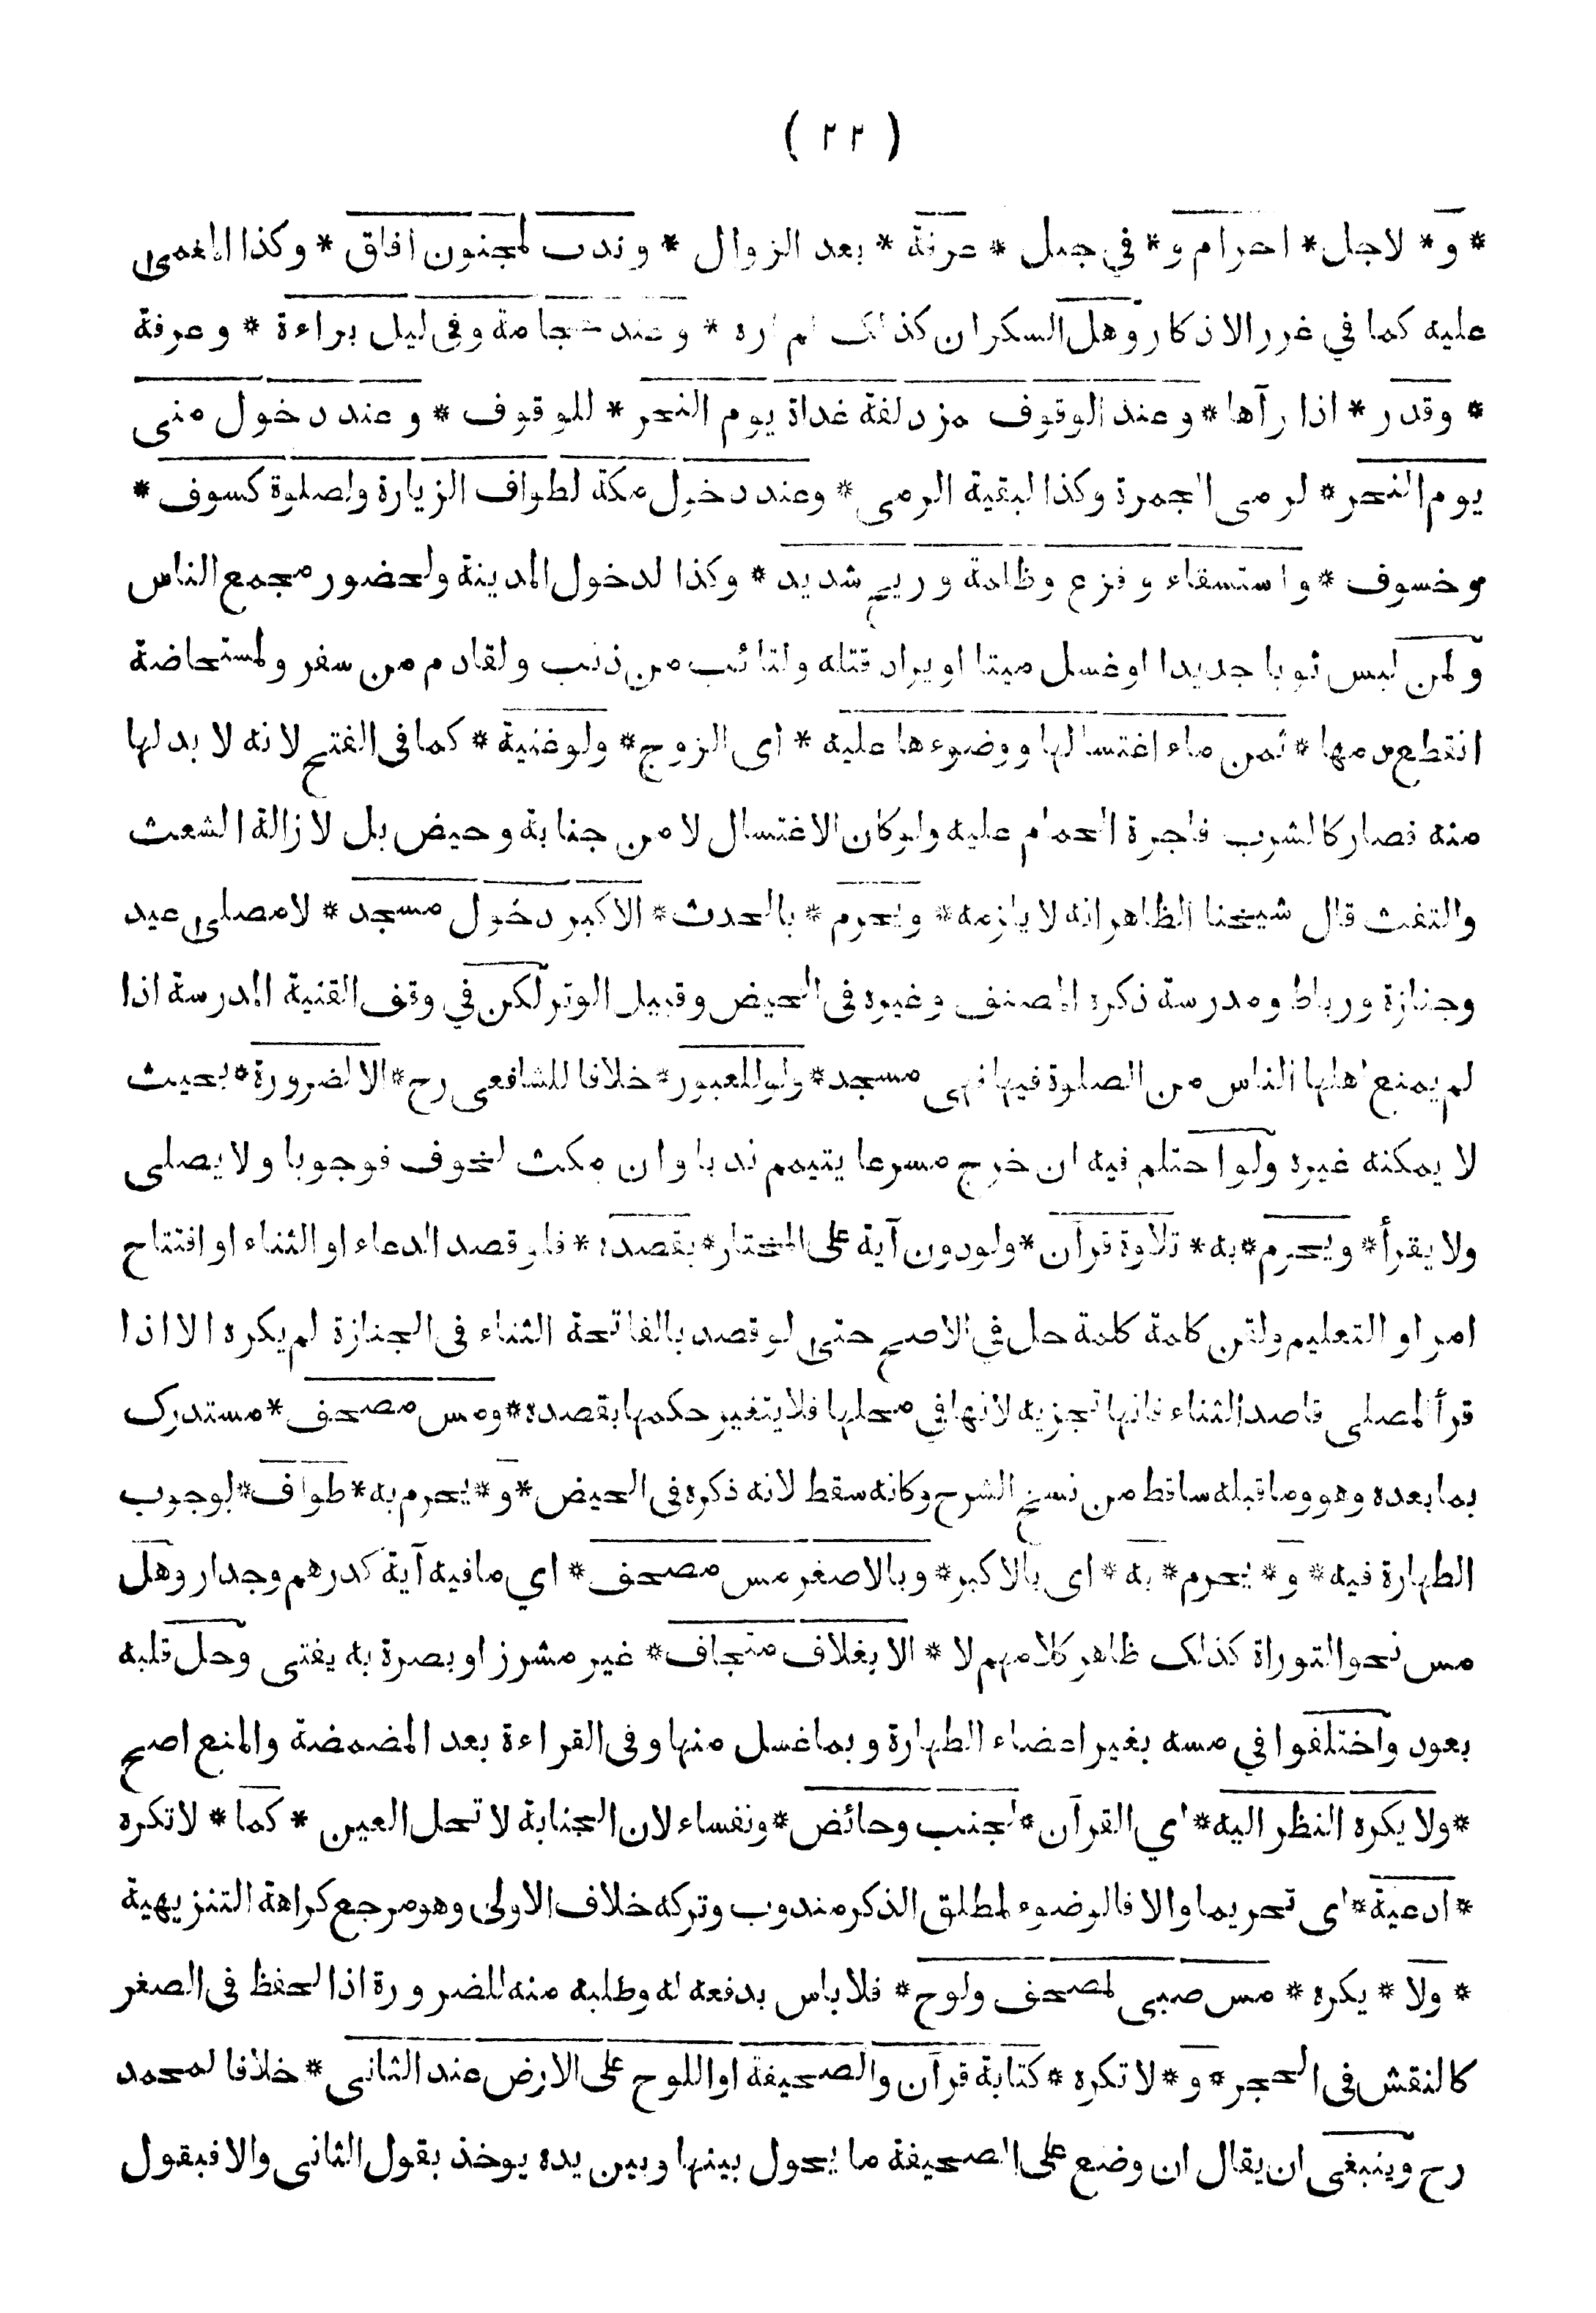 ( ٢٢ )
* و * لاجل * احرام و * في جبل * عرفة * بعد الزوال * وندب لمجنون افاق * وكذا المغمى
عليه كما في غرر الاذكار وهل السكران كذلك لم اره * وعند حجامة وفى ليل براءة * وعرفة
* وقدر * اذا رآها * وعند الوقوف مزدلفة غداة يوم النحر * للوقوف * وعند دخول منى
يوم النحر * لرمى الجمرة وكذا لبقية الرمى * وعند دخول مكة لطواف الزيارة ولصلوة كسوف *
وخسوف * واستسقاء وفزع وظلمة وريح شديد * وكذا لدخول المدينة ولحضور مجمع الناس
ولمن لبس ثوبا جديدا او غسل ميتا او يراد قتله ولتائب من ذنب ولقادم من سفر ولمستحاضة
انقطع دمها * ثمن ماء اغتسالها ووضوءها عليه * اى الزوج * ولو غنية * كما فى الفتح لانه لا بد لها
منه فصار كالشرب فاجرة الحمام عليه ولو كان الاغتسال لا من جنابة وحيض بل لازالة الشعث
والتفث قال شيخنا الظاهر انه لا يلزمه * ويحرم * بالحدث * الاكبر دخول مسجد * لا مصلى عيد
وجنازة ورباط ومدرسة ذكره المصنف وغيره فى الحيض وقبيل الوتر لكن في وقف القنية المدرسة اذا
لم يمنع اهلها الناس من الصلوة فيها فهى مسجد * ولو للعبور * خلافا للشافعى رح * الا لضرورة * بحيث
لا يمكنه غيره ولو احتلم فيه ان خرج مسرعا يتيمم ندبا وان مكث لخوف فوجوبا ولا يصلى
ولا يقرأ * ويحرم * به * تلاوة قرآن * ولو دون آية على المختار * بقصده * فلو قصد الدعاء او الثناء او افتتاح
امر او التعليم ولقن كلمة كلمة حل في الاصح حتى لو قصد بالفاتحة الثناء فى الجنازة لم يكره الا اذا
قرأ المصلى قاصد الثناء فانها تجزيه لانها في محلها فلا يتغير حكمها بقصده * ومس مصحف * مستدرك
بما بعده وهو وما قبله ساقط من نسخ الشرح وكانه سقط لانه ذكره فى الحيض * و * يحرم به * طواف * لوجوب
الطهارة فيه * و * يحرم * به * اى بالاكبر * وبالاصغر مس مصحف * اي ما فيه آية كدرهم وجدار وهل
مس نحو التوراة كذلك ظاهر كلامهم لا * الا بغلاف متجاف * غير مشرز او بصرة به يفتى وحل قلبه
بعود واختلفوا في مسه بغير اعضاء الطهارة وبما غسل منها وفى القراءة بعد المضمضة والمنع اصح
* ولا يكره النظر اليه * اي القرآن * لجنب وحائض * ونفساء لان الجنابة لا تحل العين * كما * لا تكره
* ادعية * اى تحريما والا فالوضوء لمطلق الذكر مندوب وتركه خلاف الاولى وهو مرجع كراهة التنزيهية
* ولا * يكره * مس صبى لمصحف ولوح * فلا باس بدفعه له وطلبه منه للضرورة اذ الحفظ فى الصغر
كالنقش فى الحجر * و * لا تكره * كتابة قرآن والصحيفة او اللوح على الارض عند الثانى * خلافا لمحمد
رح وينبغى ان يقال ان وضع على الصحيفة ما يحول بينها وبين يده يوخذ بقول الثانى والا فبقول